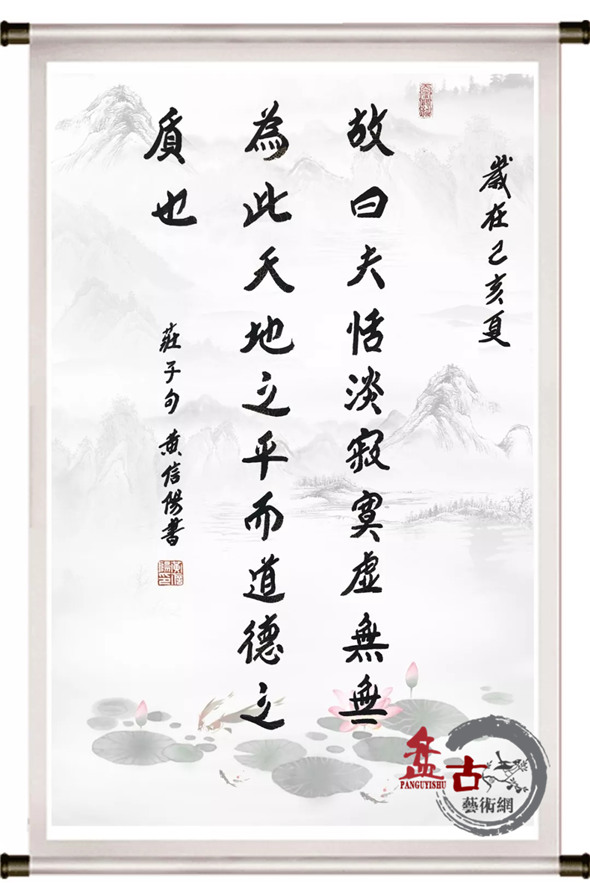 歲在己亥夏
故曰夫恬淡寂寞虛無無
為此天地之平而道德之
質也
莊子句 黄信陽書
盘古
PANGUYISHU
藝術網